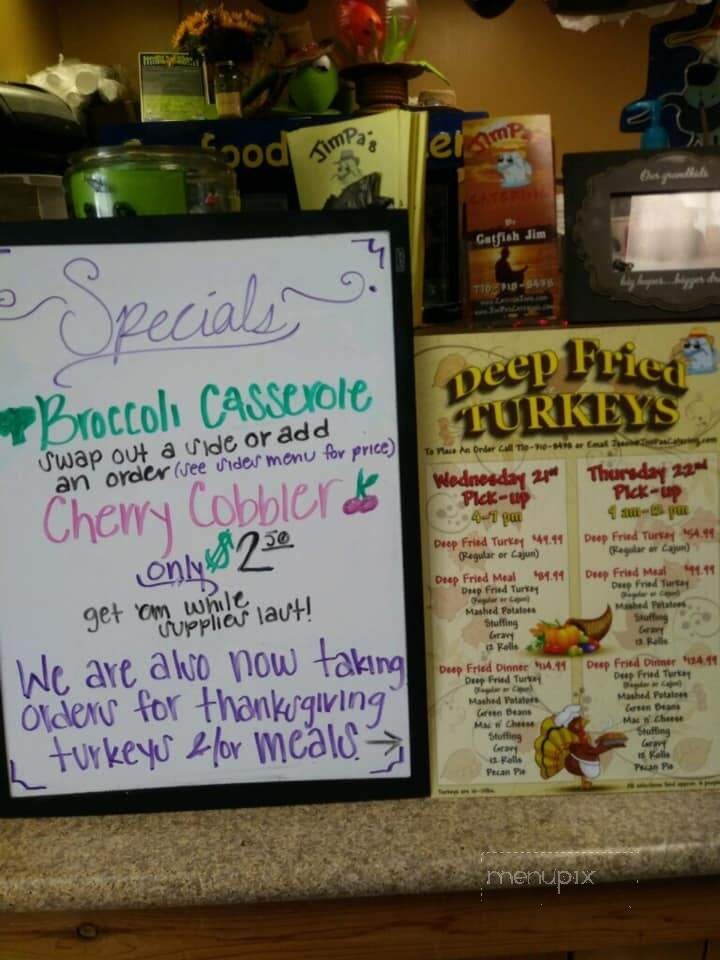 JimPa's
food
JimPa's
CATERING
By
Catfish Jim
770-710-8498
Our grandkids
big hopes...bigger
Specials
Broccoli Casserole
swap out a side or add
an order (see sides menu for price)
Cherry Cobbler
only $2.50
get 'em while
supplies last!
We are also now taking
orders for thanksgiving
turkeys &/or meals.
Deep Fried
TURKEYS
To Place An Order Call 770-710-8498 or Email
Wednesday 21st
Pick-up
4-7 pm
Deep Fried Turkey $49.99
(Regular or Cajun)
Deep Fried Meal $89.99
Deep Fried Turkey
(Regular or Cajun)
Mashed Potatoes
Stuffing
Gravy
12 Rolls
Deep Fried Dinner $114.99
Deep Fried Turkey
(Regular or Cajun)
Mashed Potatoes
Green Beans
Mac n' Cheese
Stuffing
Gravy
12 Rolls
Pecan Pie
Thursday 22nd
Pick-up
9 am-12 pm
Deep Fried Turkey $54.99
(Regular or Cajun)
Deep Fried Meal $99.99
Deep Fried Turkey
(Regular or Cajun)
Mashed Potatoes
Stuffing
Gravy
12 Rolls
Deep Fried Dinner $124.99
Deep Fried Turkey
(Regular or Cajun)
Mashed Potatoes
Green Beans
Mac n' Cheese
Stuffing
Gravy
Rolls
Pecan Pie
Turkeys are
menupix